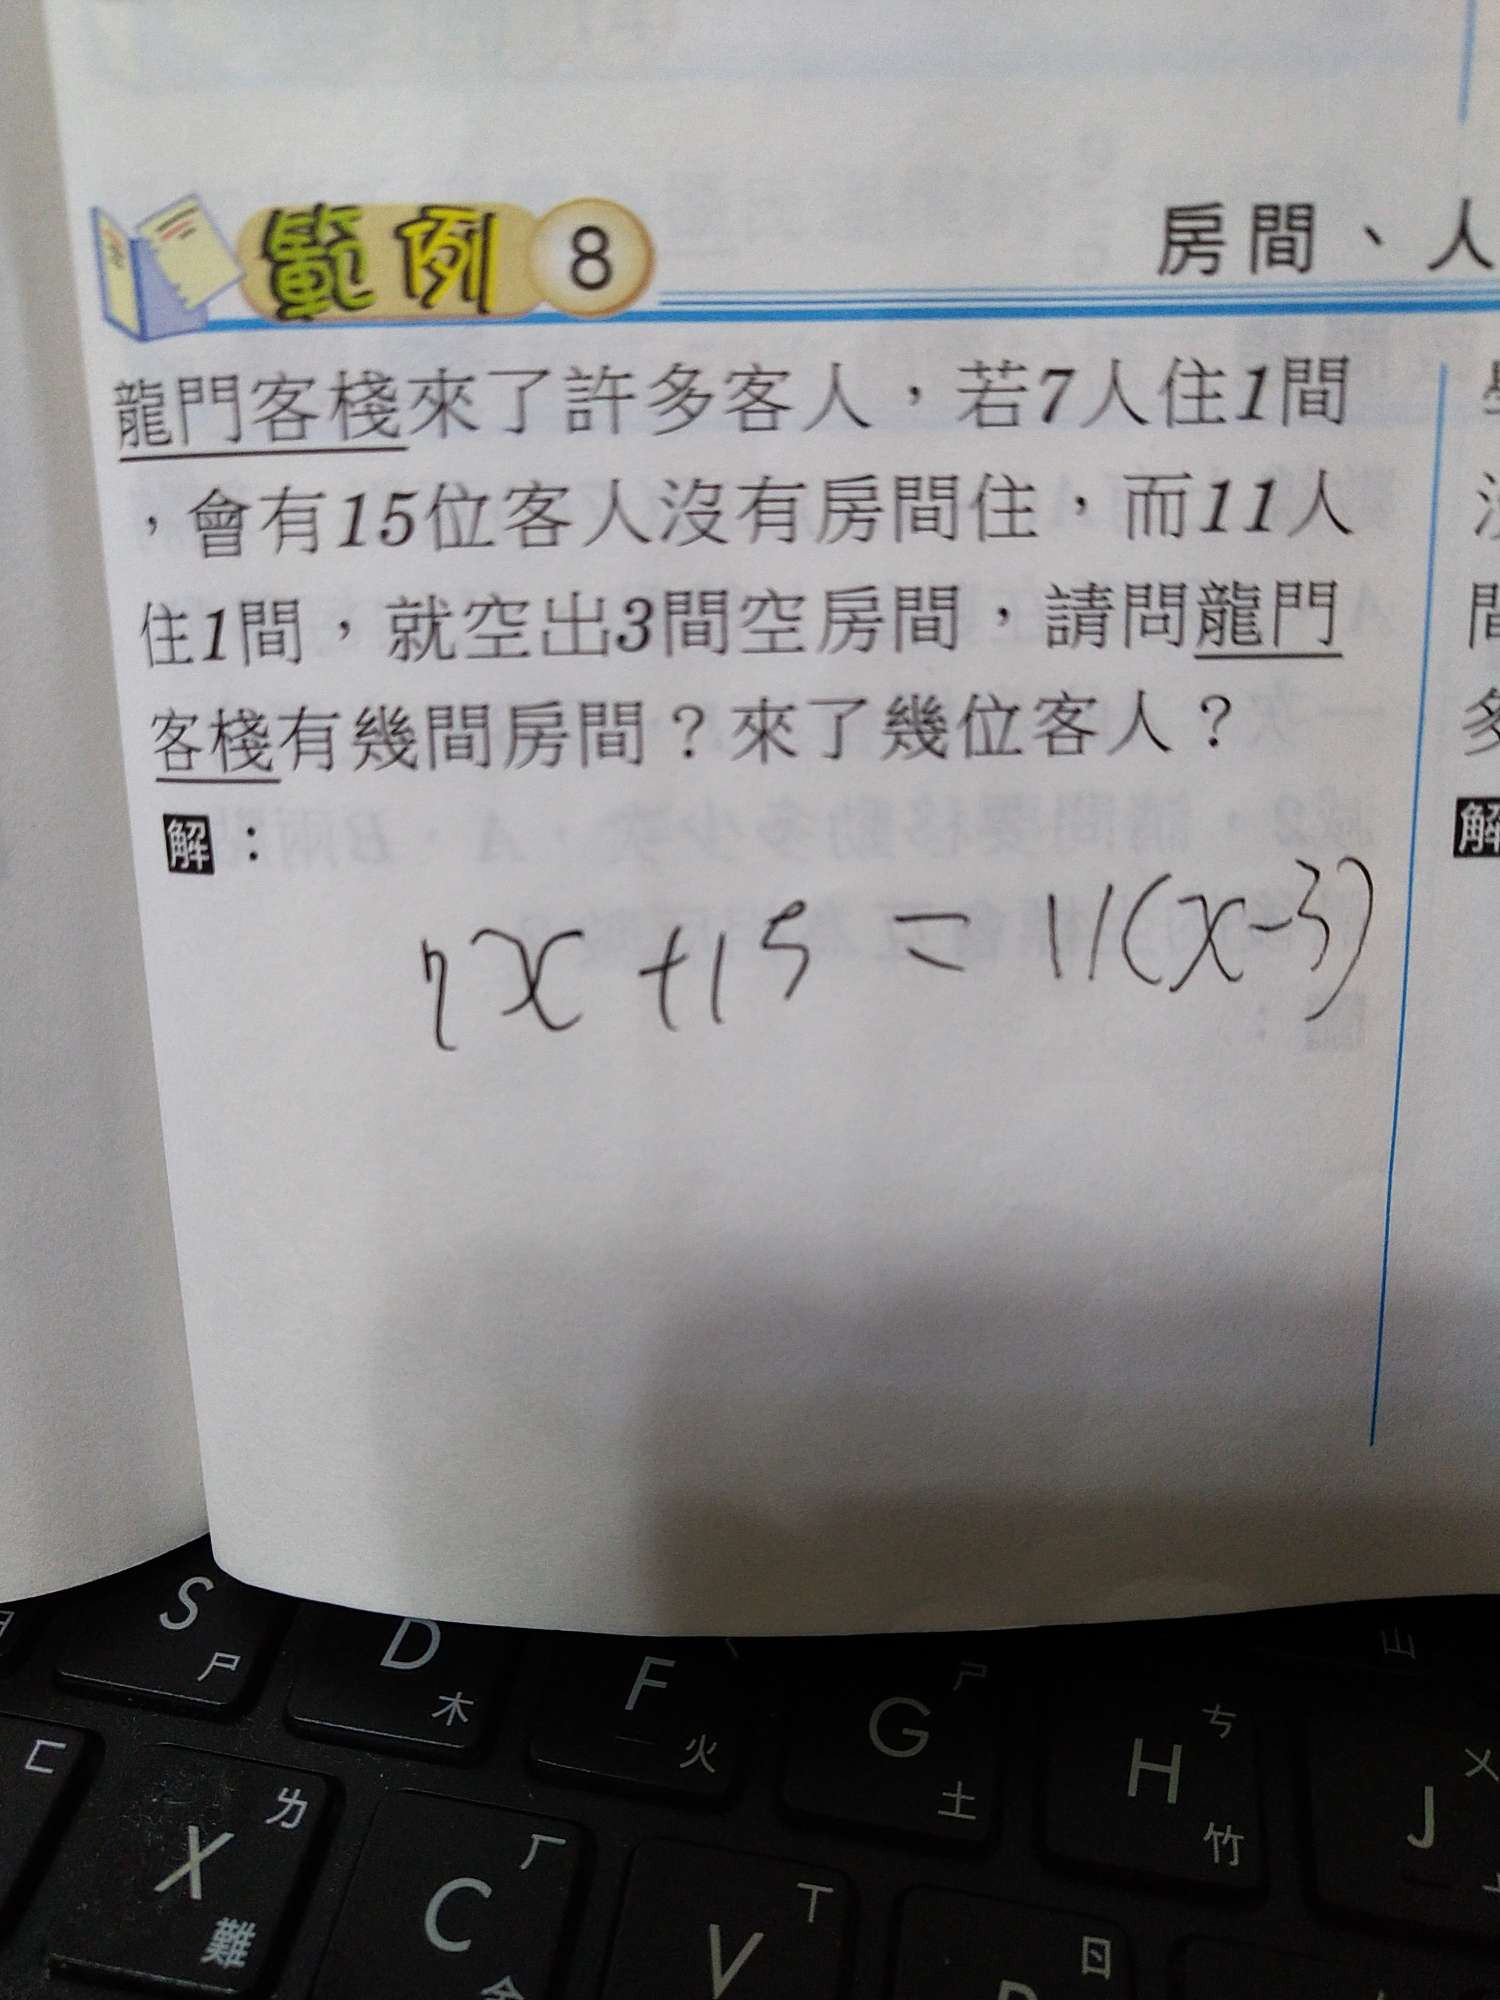 範例 8
房間、人
龍門客棧來了許多客人，若7人住1間
，會有15位客人沒有房間住，而11人
住1間，就空出3間空房間，請問龍門
客棧有幾間房間？來了幾位客人？
解：
解
7x+15=11(x-3)
S ㄕ
D 木
F 火
G 土
H ㄘ 竹
J ㄨ
ㄈ
X ㄌ 難
C ㄏ 金
V ㄒ
日
山